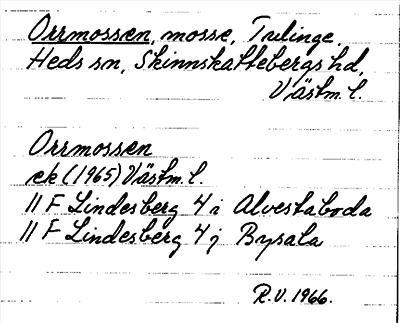 Orrmossen, mosse, Tulinge,
Heds sn, Skinnskattebergs hd,
Västm. l.
Orrmossen
ek (1965) Västm. l.
11 F Lindesberg 4 i Alvestaboda
11 F Lindesberg 4 j Bysala
R.V. 1966.